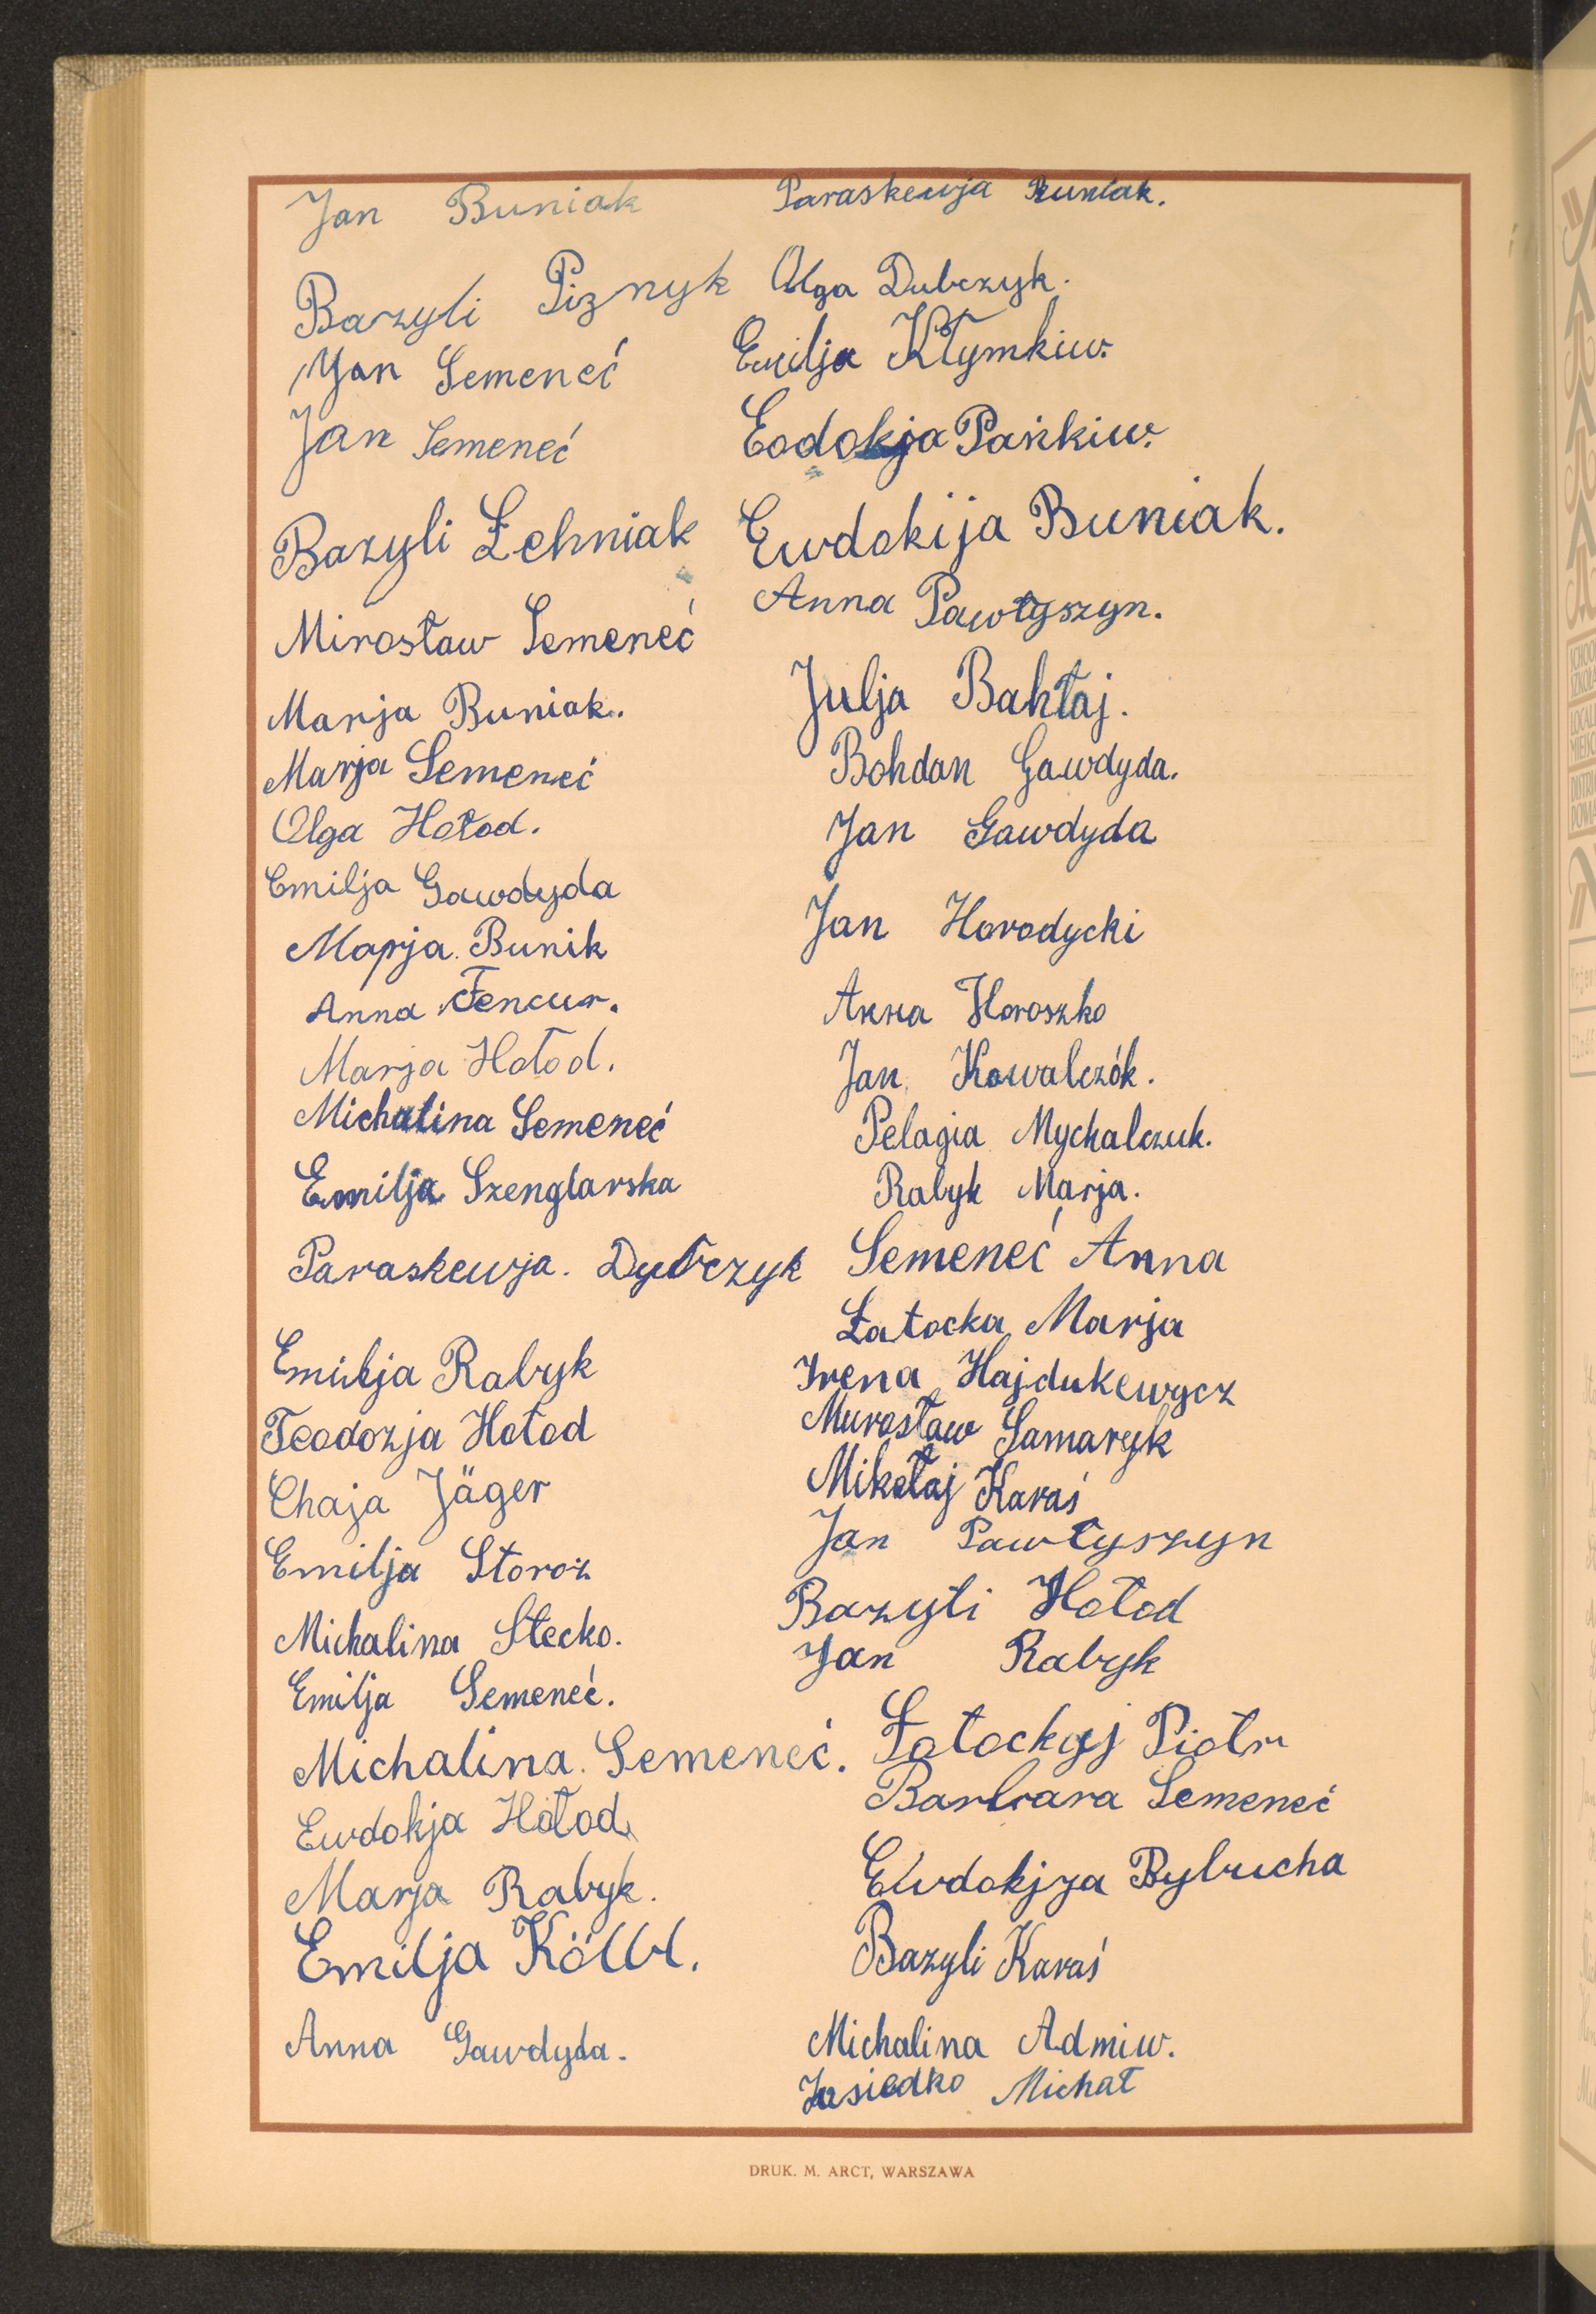 Jan Buniak
Bazyli Piznyk
Jan Semeneć
Jan Semeneć
Bazyli Łehniak
Mirosław Semeneć
Marja Buniak.
Marja Semeneć
Olga Hołod.
Emilja Gawdyda
Mapja. Bunik
Anna Fencur.
Marja Hołod.
Michalina Semeneć
Emilja Szenglarska
Paraskewja. Dybczyk
Emilja Rabyk
Teodozja Hołod
Chaja Jäger
Emilja Storoż
Michalina Stecko.
Emilja Semeneć.
Michalina. Semeneć.
Ewdokja Hołod
Marja Rabyk.
Emilja Kölbl.
Anna Gawdyda.
Paraskewja Buniak.
Olga Dubczyk.
Emilja Kłymkiw.
Eodokja Pańkiw.
Ewdokija Buniak.
Anna Pawłyszyn.
Julja Bahłaj.
Bohdan Gawdyda.
Jan Gawdyda
Jan Horodycki
Anna Horoszko
Jan Kowalczók.
Pelagia Mychalczuk.
Rabyk Marja.
Semeneć Anna
Łatocka Marja
Irena Hajdukewycz
Murosław Samaryk
Mikołaj Karaś
Jan Pawłyszyn
Bazyli Hołod
Jan Rabyk
Łatockyj Piotr
Barbara Semeneć
Ewdokjja Bybucha
Bazyli Karaś
Michalina Admiw.
Michał
DRUK. M. ARCT, WARSZAWA